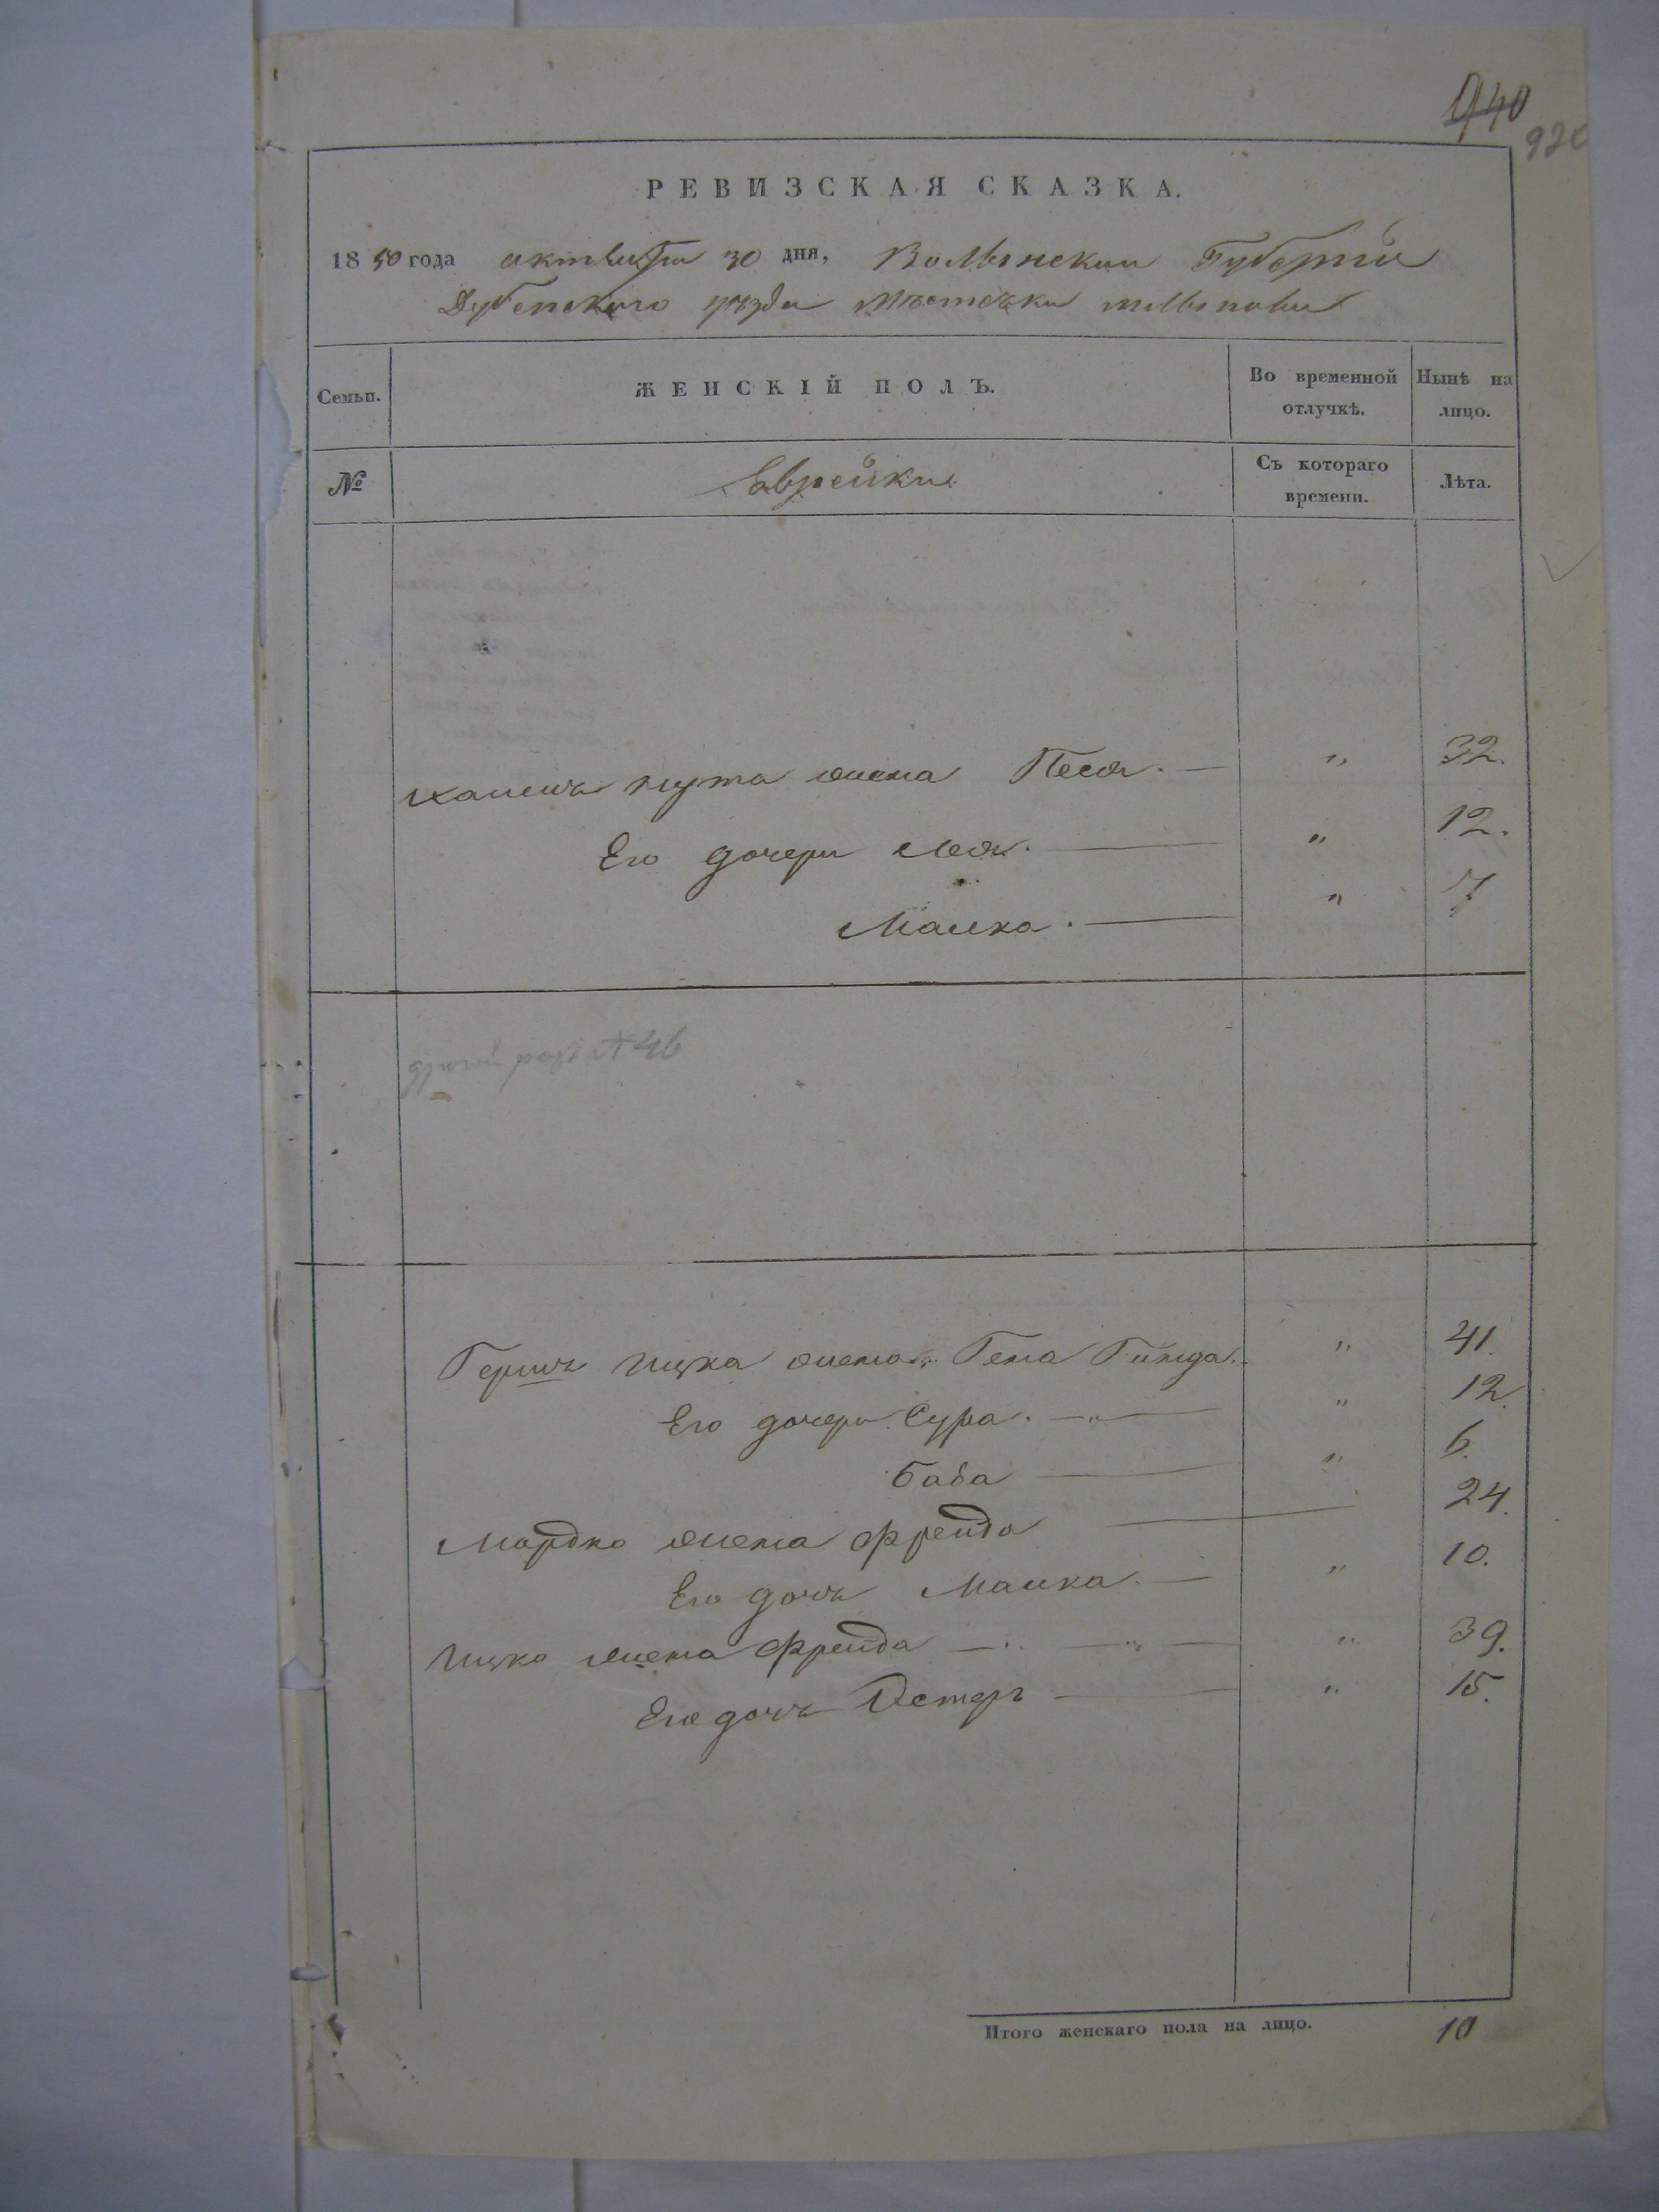 940
920
РЕВИЗСКАЯ СКАЗКА.
1850 года октября 30 дня, Волынской Губерніи
Дубенскаго уѣзда Мѣстечка Млынова
Семьи.
ЖЕНСКІЙ ПОЛЪ.
Во временной отлучкѣ.
Нынѣ на лицо.
№
Еврейки
Съ котораго времени.
Лѣта.
нута жена Песя. — „ 32.
Его дочери Лея. — „ 12.
Малка. — „ 7
№ 46
Гершъ Ицка жена Гена Гитда. „ 41.
Его дочери Сура. — „ 12.
Баба — „ 6.
Мордко жена Фрейда — 24.
Его дочь Малка. — „ 10.
Ицко жена Фрейда — „ 39.
Его дочь Эстеръ — „ 15.
Итого женскаго пола на лицо. 10